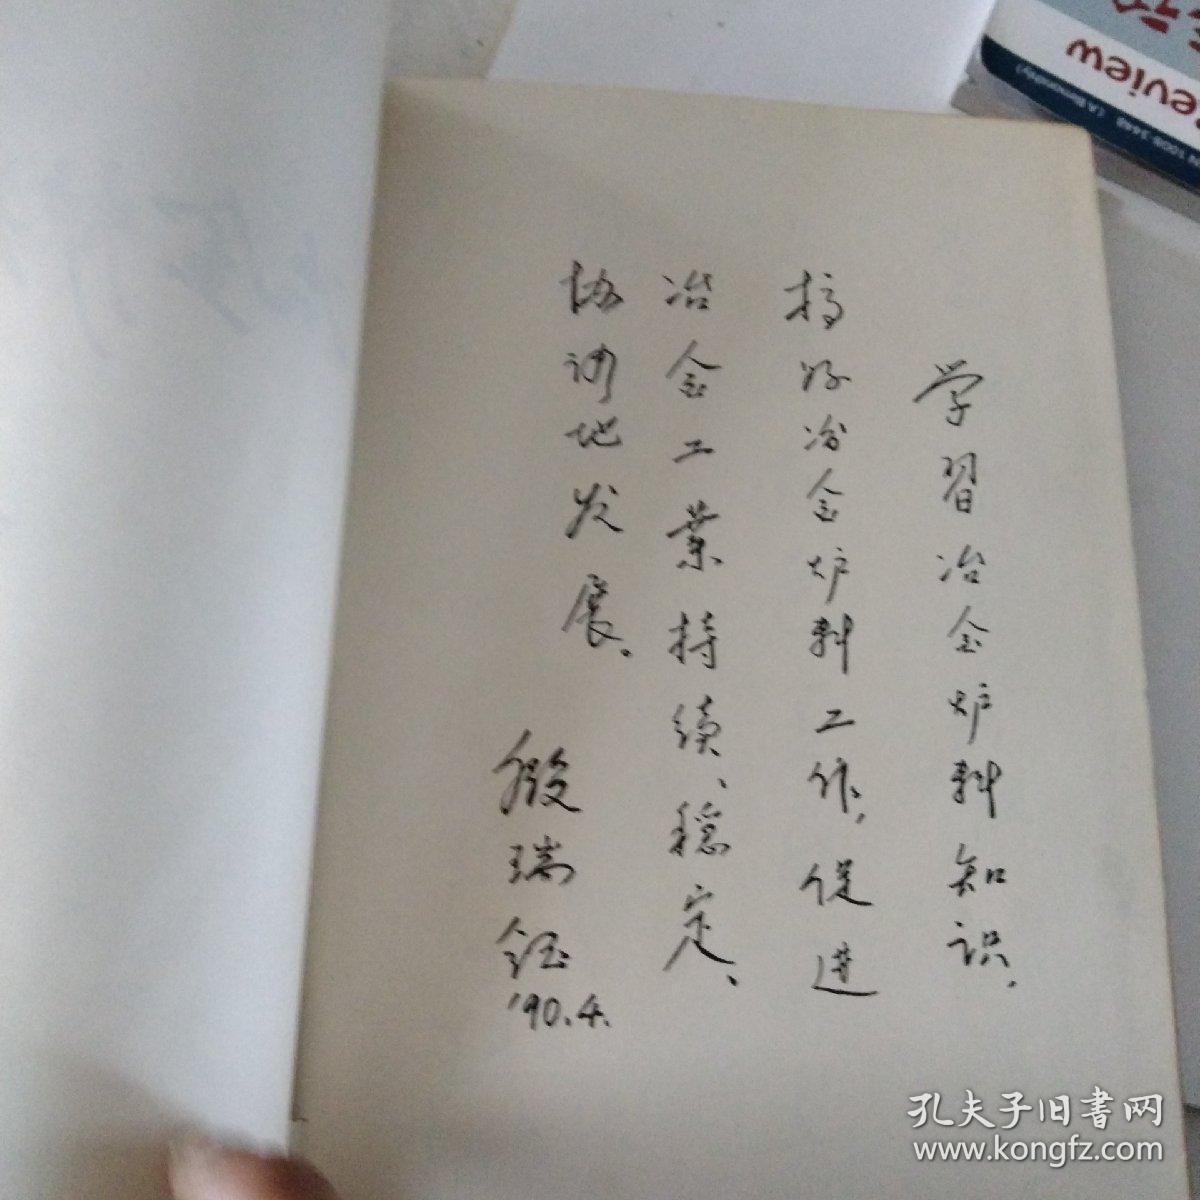 学习冶金炉料知识，
搞好冶金炉料工作，促进
冶金工业持续、稳定、
协调地发展。
殷瑞钰
'90.4.
Review
孔夫子旧书网
www.kongfz.com